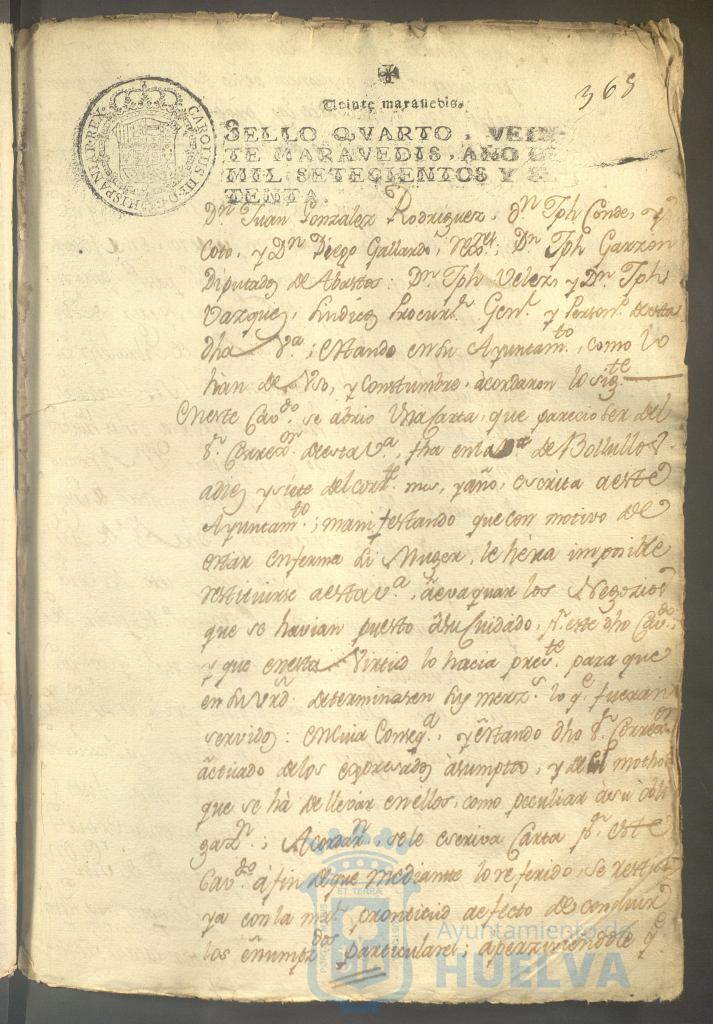 365
CAROLUS III D.G. HISPANIAR. REX.
Veinte maravedis.
SELLO QVARTO, VEIN-
TE MARAVEDIS, AÑO DE
MIL SETECIENTOS Y SE
TENTA.
Dn. Juan Gonzalez Rodriguez, dn Jph Conde, y
Coto, y Dn Diego Gallardo, Dn Jph Garzon
Diputados de Abastos: Dn. Jph Velez, y Dn. Jph
Vazquez, Sindicos Procurs. Genl. y Person.o de esta
dha Va.; estando en su Ayuntamto., como lo
han de Uso, y Constumbre, acordaron lo sigte.
En este Cavdo. se abrio Una Carta, que parecio ser del
Sr. Corregor. de esta Va., fha en la Va de Bollullos
a diez y siete del corrte. mes, y año, escrita a este
Ayuntamto.; manifestando que con motivo de
estar enferma su Muger, le hera imposible
restituirse a esta Va., a evaquar los Negozios
que se havian puesto a su Cuidado, pr. este dho Cavdo.,
y que en esta Virtud lo hacia prete. para que
en su Vrd. determinasen sus merzs. lo qe. fueran
servidos: en cuia Conseqa., y estando dho Sr. Corregor
actuado de los expresados asumptos, y de el methodo
que se hà de llevar en ellos, como peculiar a su obli
gazn.; Acordarn. se le escriva Carta pr. este
Cavdo. à fin de que mediante lo referido, se restitu
ya con la mar. prontitud a efecto de conduir
los enumpzdos particulares; aperzviendole qe
ET TERRAE
Ayuntamiento de
HUELVA